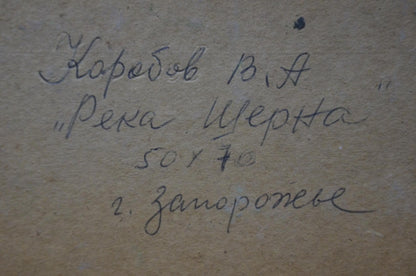 Коробов В.А
„Река Шерна"
50 х 70
г. Запорожье